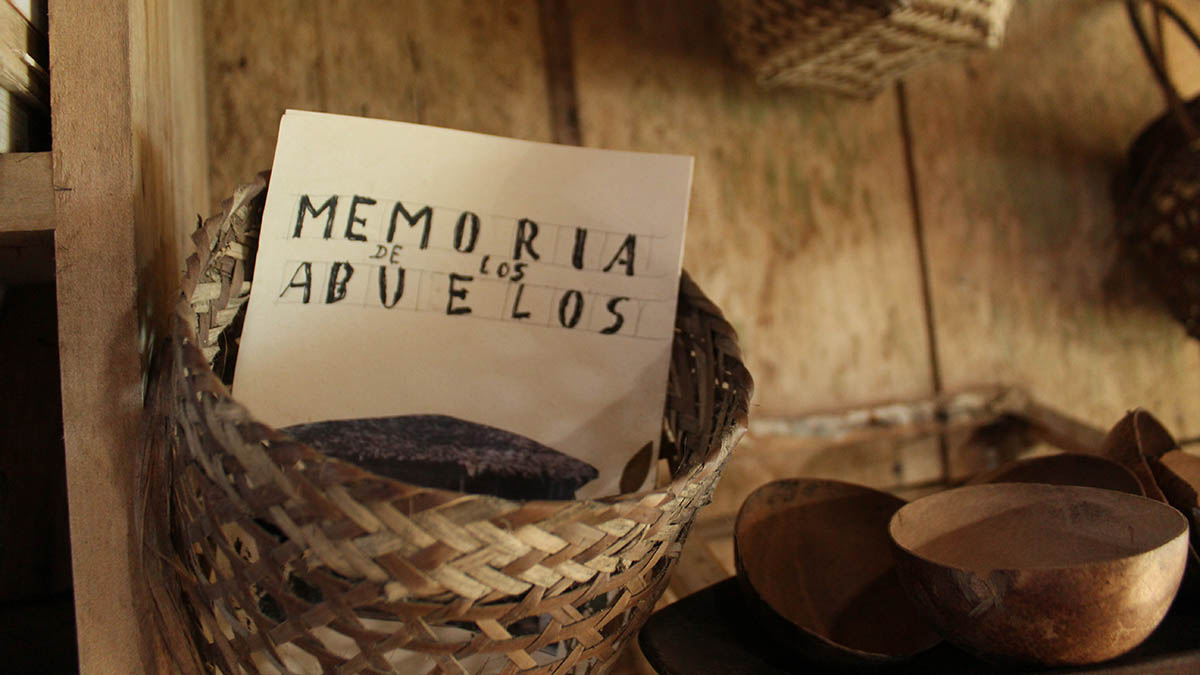 MEMORIA
DE LOS
ABUELOS